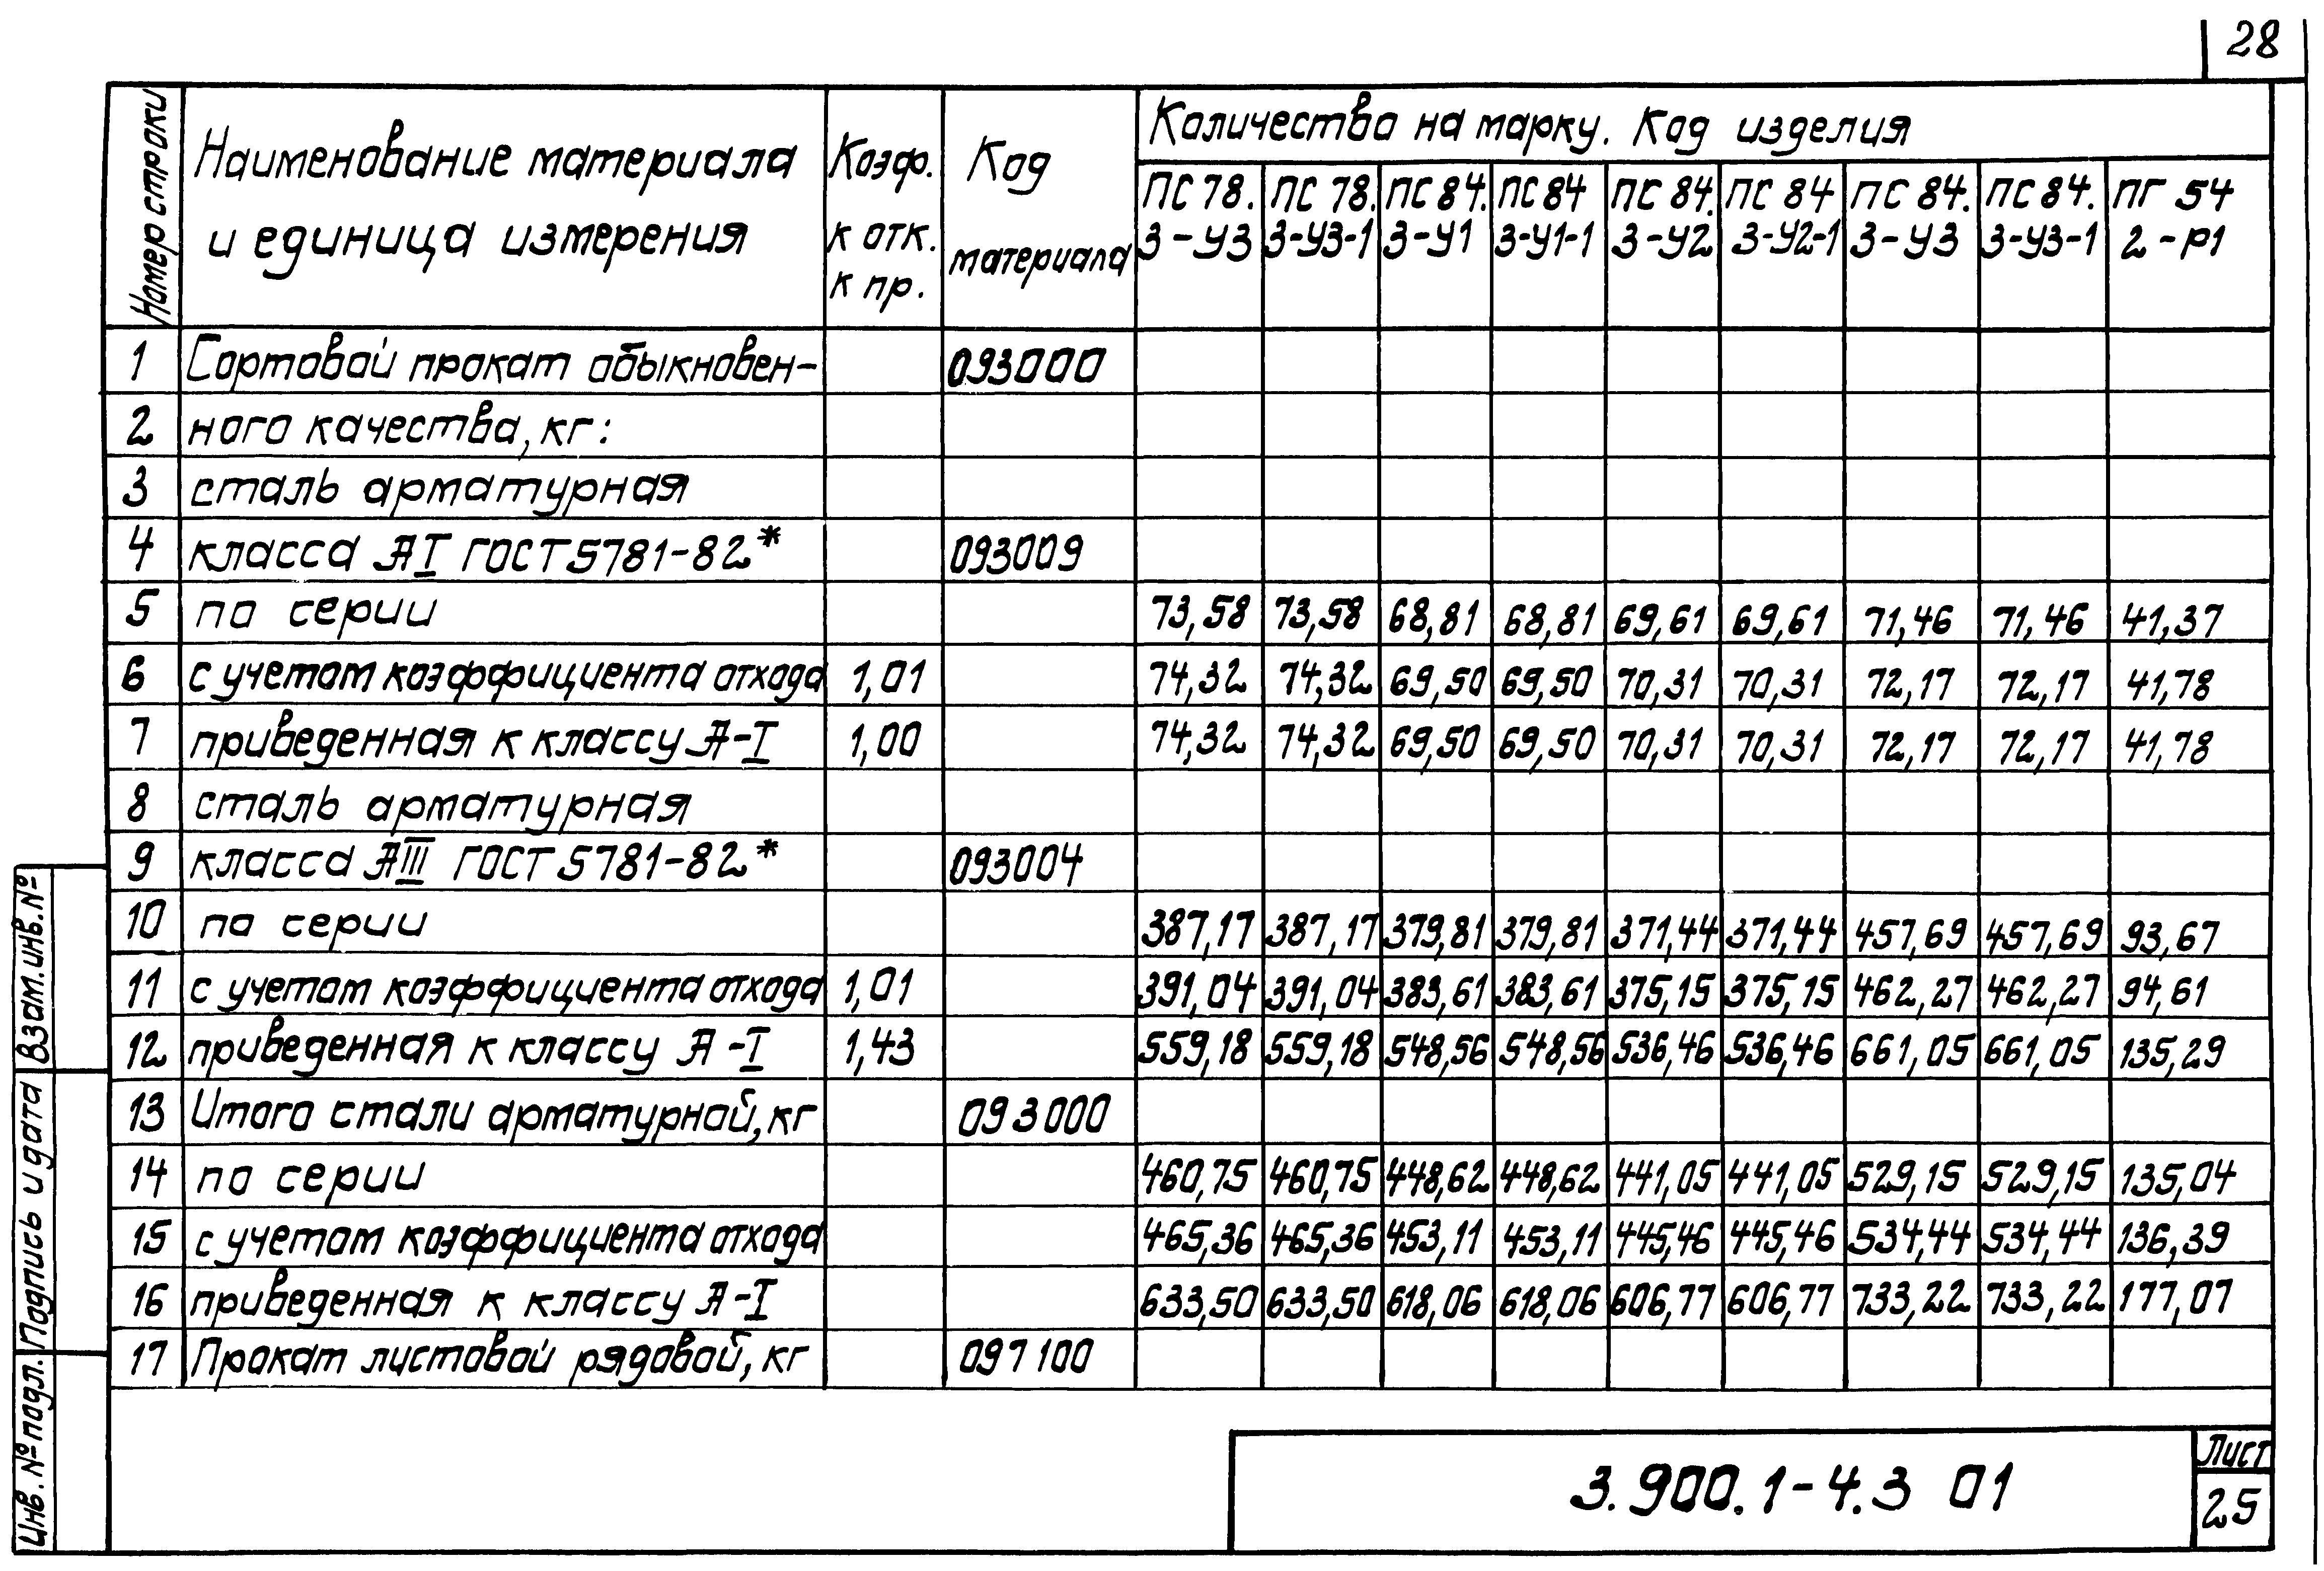 28
Номер строки | Наименование материала и единица измерения | Коэф. к отк. к пр. | Код материала | Количество на марку. Код изделия
ПС 78. 3-У3 | ПС 78. 3-У3-1 | ПС 84. 3-У1 | ПС 84 3-У1-1 | ПС 84. 3-У2 | ПС 84 3-У2-1 | ПС 84. 3-У3 | ПС 84. 3-У3-1 | ПГ 54 2-Р1
1 Сортовой прокат обыкновен- 093000
2 ного качества, кг:
3 сталь арматурная
4 класса АI ГОСТ 5781-82* 093009
5 по серии 73,58 73,58 68,81 68,81 69,61 69,61 71,46 71,46 41,37
6 с учетом коэффициента отхода 1,01 74,32 74,32 69,50 69,50 70,31 70,31 72,17 72,17 41,78
7 приведенная к классу А-I 1,00 74,32 74,32 69,50 69,50 70,31 70,31 72,17 72,17 41,78
8 сталь арматурная
9 класса АIII ГОСТ 5781-82* 093004
10 по серии 387,17 387,17 379,81 379,81 371,44 371,44 457,69 457,69 93,67
11 с учетом коэффициента отхода 1,01 391,04 391,04 383,61 383,61 375,15 375,15 462,27 462,27 94,61
12 приведенная к классу А-I 1,43 559,18 559,18 548,56 548,56 536,46 536,46 661,05 661,05 135,29
13 Итого стали арматурной, кг 093000
14 по серии 460,75 460,75 448,62 448,62 441,05 441,05 529,15 529,15 135,04
15 с учетом коэффициента отхода 465,36 465,36 453,11 453,11 445,46 445,46 534,44 534,44 136,39
16 приведенная к классу А-I 633,50 633,50 618,06 618,06 606,77 606,77 733,22 733,22 177,07
17 Прокат листовой рядовой, кг 097100
Взам. инв. №
Подпись и дата
Инв. № подл.
3.900.1-4.3 01
Лист
25